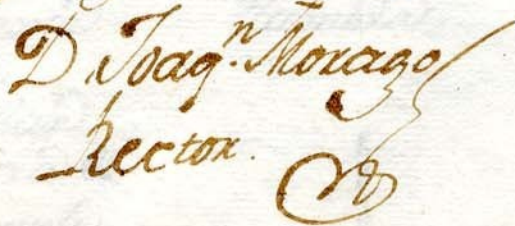 D. Joaqn. Morago
Rector.